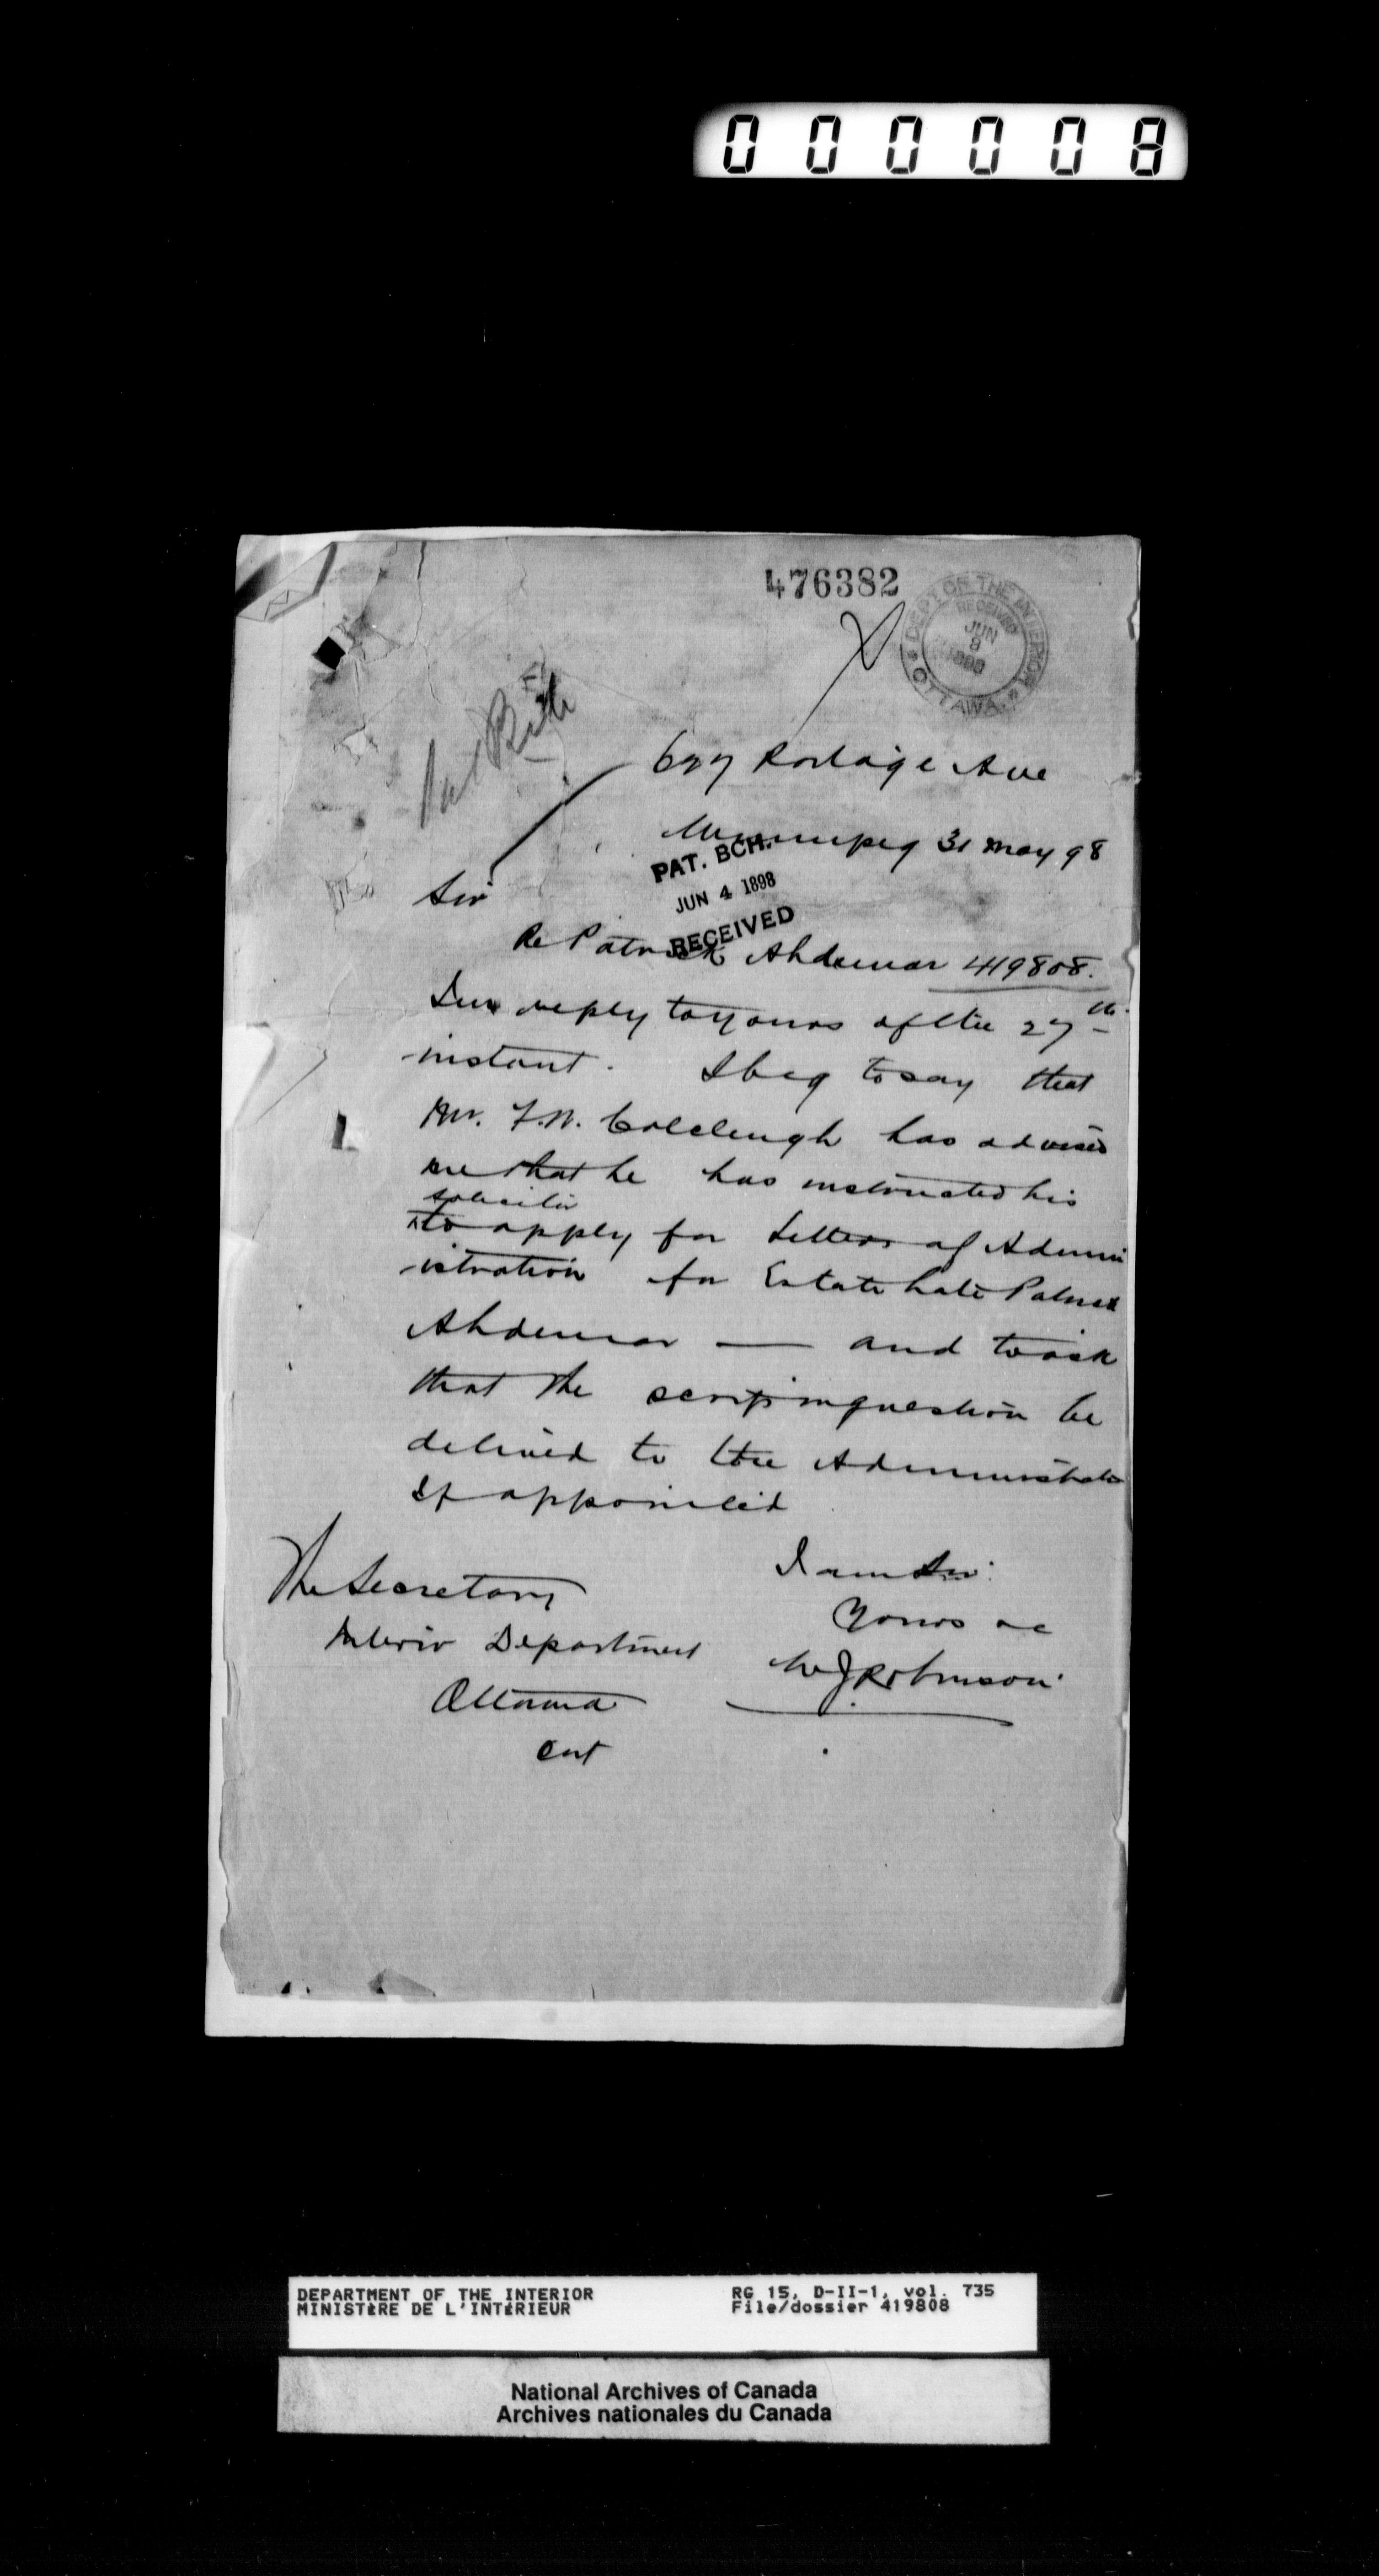 000008
476382
DEPT OF THE INTERIOR
RECEIVED
JUN
9
1898
OTTAWA
677 Portage Ave
Winnipeg 31 May 98
PAT. BCH.
JUN 4 1898
RECEIVED
Sir
Re Patrick Ahdemar 419808.
In reply to yours of the 27th
instant. I beg to say that
Mr. F.W. Colcleugh has advised
me that he has instructed his
solicitor
to apply for Letters of Admin
istration for Estate Late Patrick
Ahdemar — and to ask
that the scrip in question be
delived to the Administrator
If appointed
I am Sir.
Yours &c
W J Robinson
The Secretary
Interior Department
Ottawa
Ont
DEPARTMENT OF THE INTERIOR
MINISTÈRE DE L'INTÉRIEUR
RG 15, D-II-1, vol. 735
File/dossier 419808
National Archives of Canada
Archives nationales du Canada